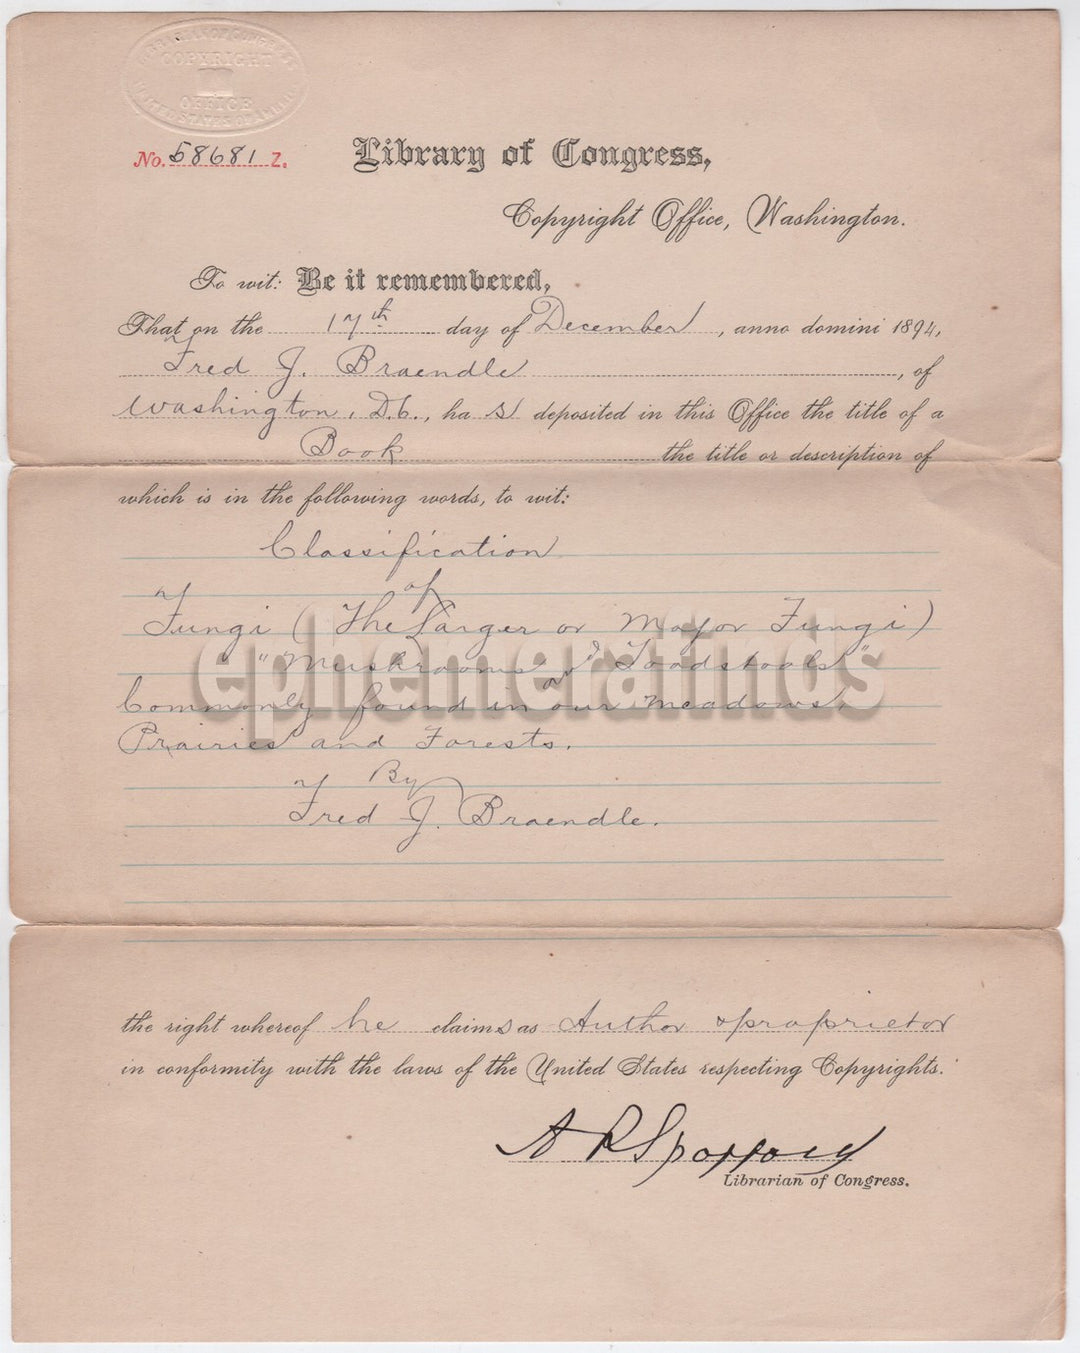 LIBRARIAN OF CONGRESS
COPYRIGHT
OFFICE
UNITED STATES OF AMERICA
No. 58681 Z.
Library of Congress,
Copyright Office, Washington.
To wit: Be it remembered,
That on the 17th day of December, anno domini 1894,
Fred J. Braendle, of
Washington, D.C., ha s deposited in this Office the title of a
Book the title or description of
which is in the following words, to wit:
Classification
of
Fungi (The Larger or Major Fungi)
"Mushrooms & Toadstools"
Commonly found in our meadows,
Prairies and Forests.
By
Fred J. Braendle.
ephemerafinds
the right whereof he claims as Author & proprietor
in conformity with the laws of the United States respecting Copyrights.
A R Spofford
Librarian of Congress.